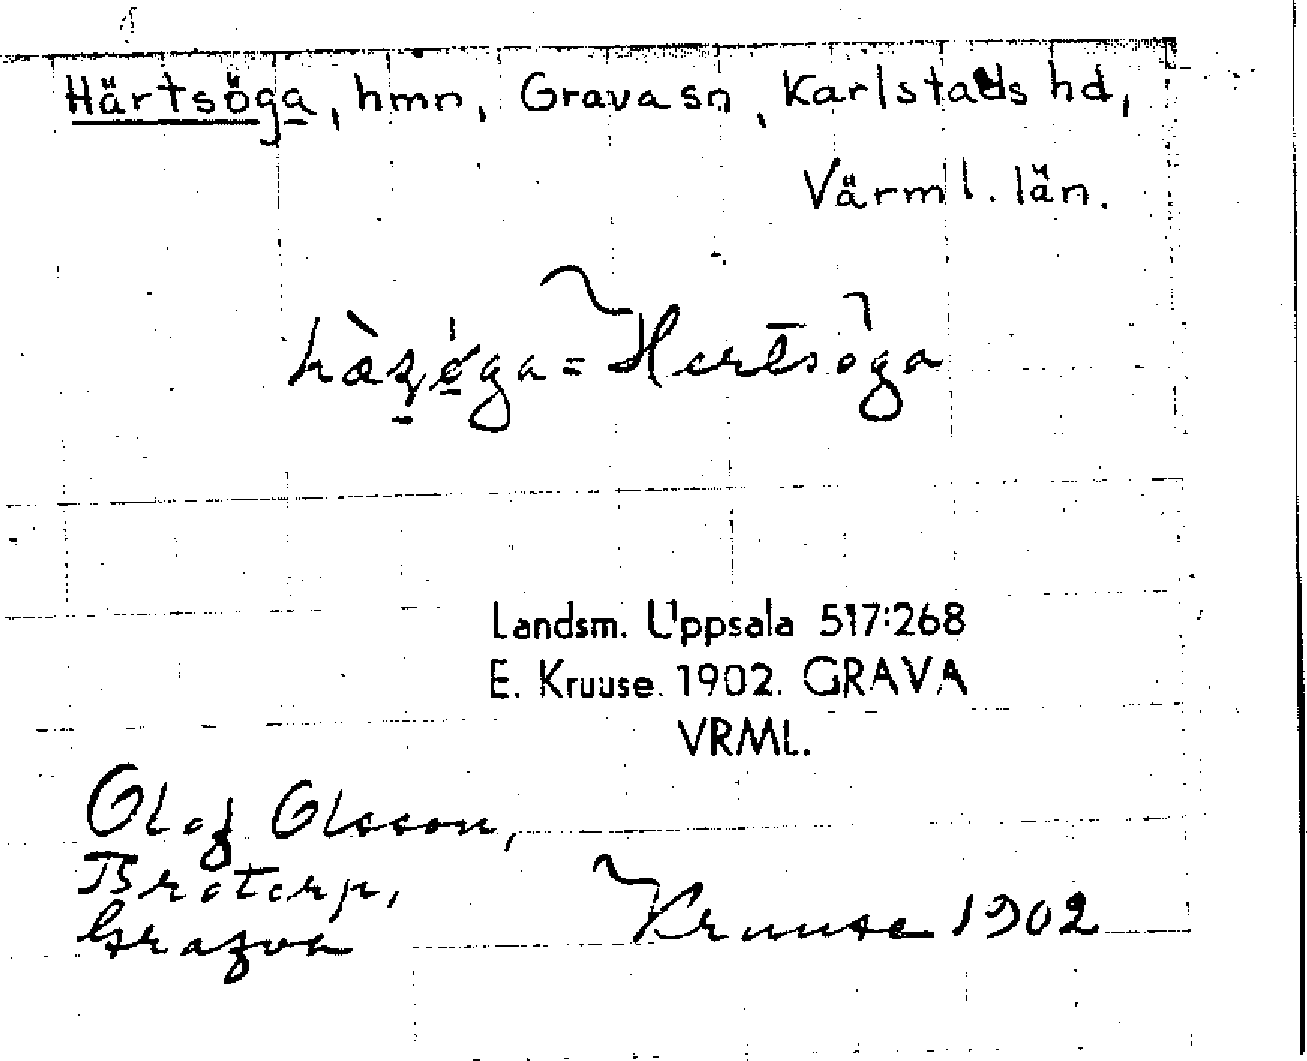 Härtsöga, hmn, Grava sn, Karlstads hd,
Värml. län.
= Hertsöga
Landsm. Uppsala 517:268
E. Kruuse. 1902. GRAVA
VRML.
Olof Olsson,
Brotorp,
Grafva
Kruuse 1902